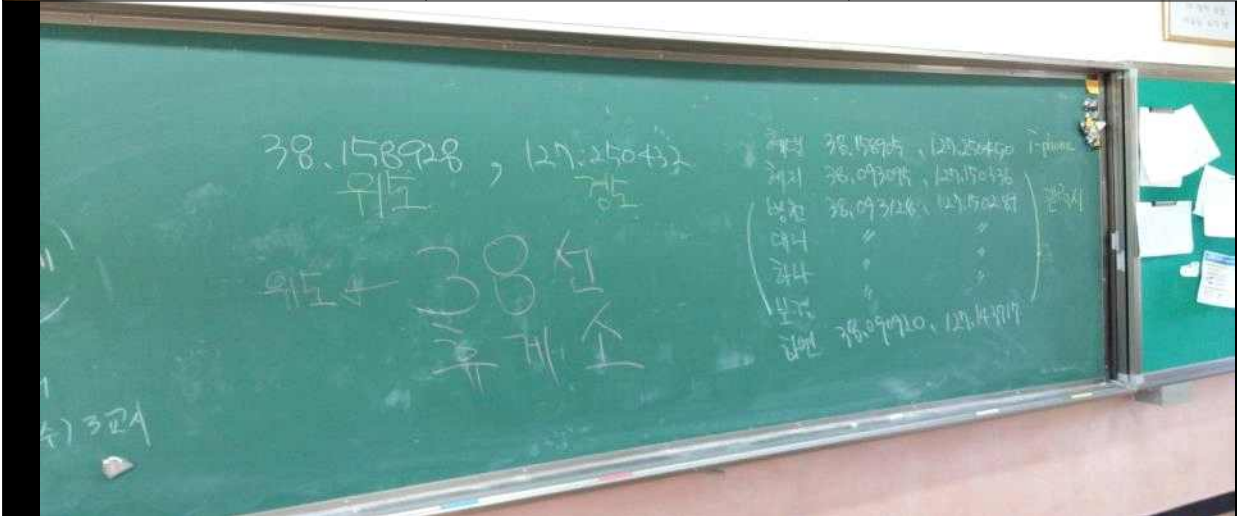 38.158928, 127.250432
위도 경도
위도 ← 38선
휴게소
38.158905, 127.250450 i-phone
혜지 38.093095, 127.150336
병헌 38.093128, 127.150287 갤럭시
대니 〃 〃
하나 〃 〃
보검 〃 〃
38.090920, 127.143717
) 3교시